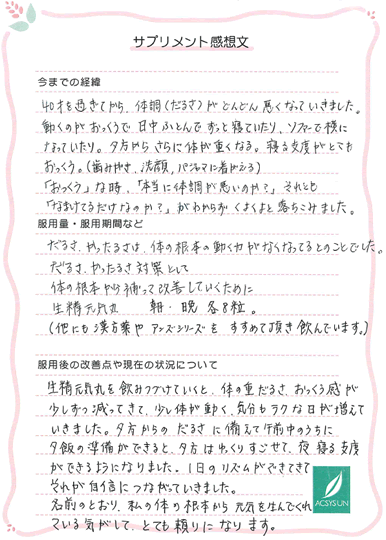 サプリメント感想文
今までの経緯
40才を過ぎてから、体調(だるさ)がどんどん悪くなっていきました。
動くのがおっくうで日中ふとんでずっと寝ていたり、ソファーで横に
なっていたり。夕方からさらに体が重くなる。寝る支度がとても
おっくう。(歯みがき、洗顔、パジャマに着がえる)
「おっくう」な時、「本当に体調が悪いのか?」それとも
「なまけてるだけなのか?」がわからずくよくよと落ちこみました。
服用量・服用期間など
だるさ、やったるさは、体の根本の動く力がなくなってるとのことでした。
だるさ、やったるさ対策として
体の根本から補って改善していくために
生精元気丸 朝・晩 各8粒。
(他にも漢方薬やアンズシリーズをすすめて頂き飲んでいます。)
服用後の改善点や現在の状況について
生精元気丸を飲みつづけていくと、体の重だるさ、おっくう感が
少しずつ減ってきて、少し体が動く、気分もラクな日が増えて
いきました。夕方からのだるさに備えて午前中のうちに
夕飯の準備ができると、夕方はゆっくりすごせて、夜寝る支度
ができるようになりました。1日のリズムができてきて
それが自信につながっていきました。
名前のとおり、私の体の根本から元気を生んでくれ
ている気がして、とても頼りになります。
ACSYSUN